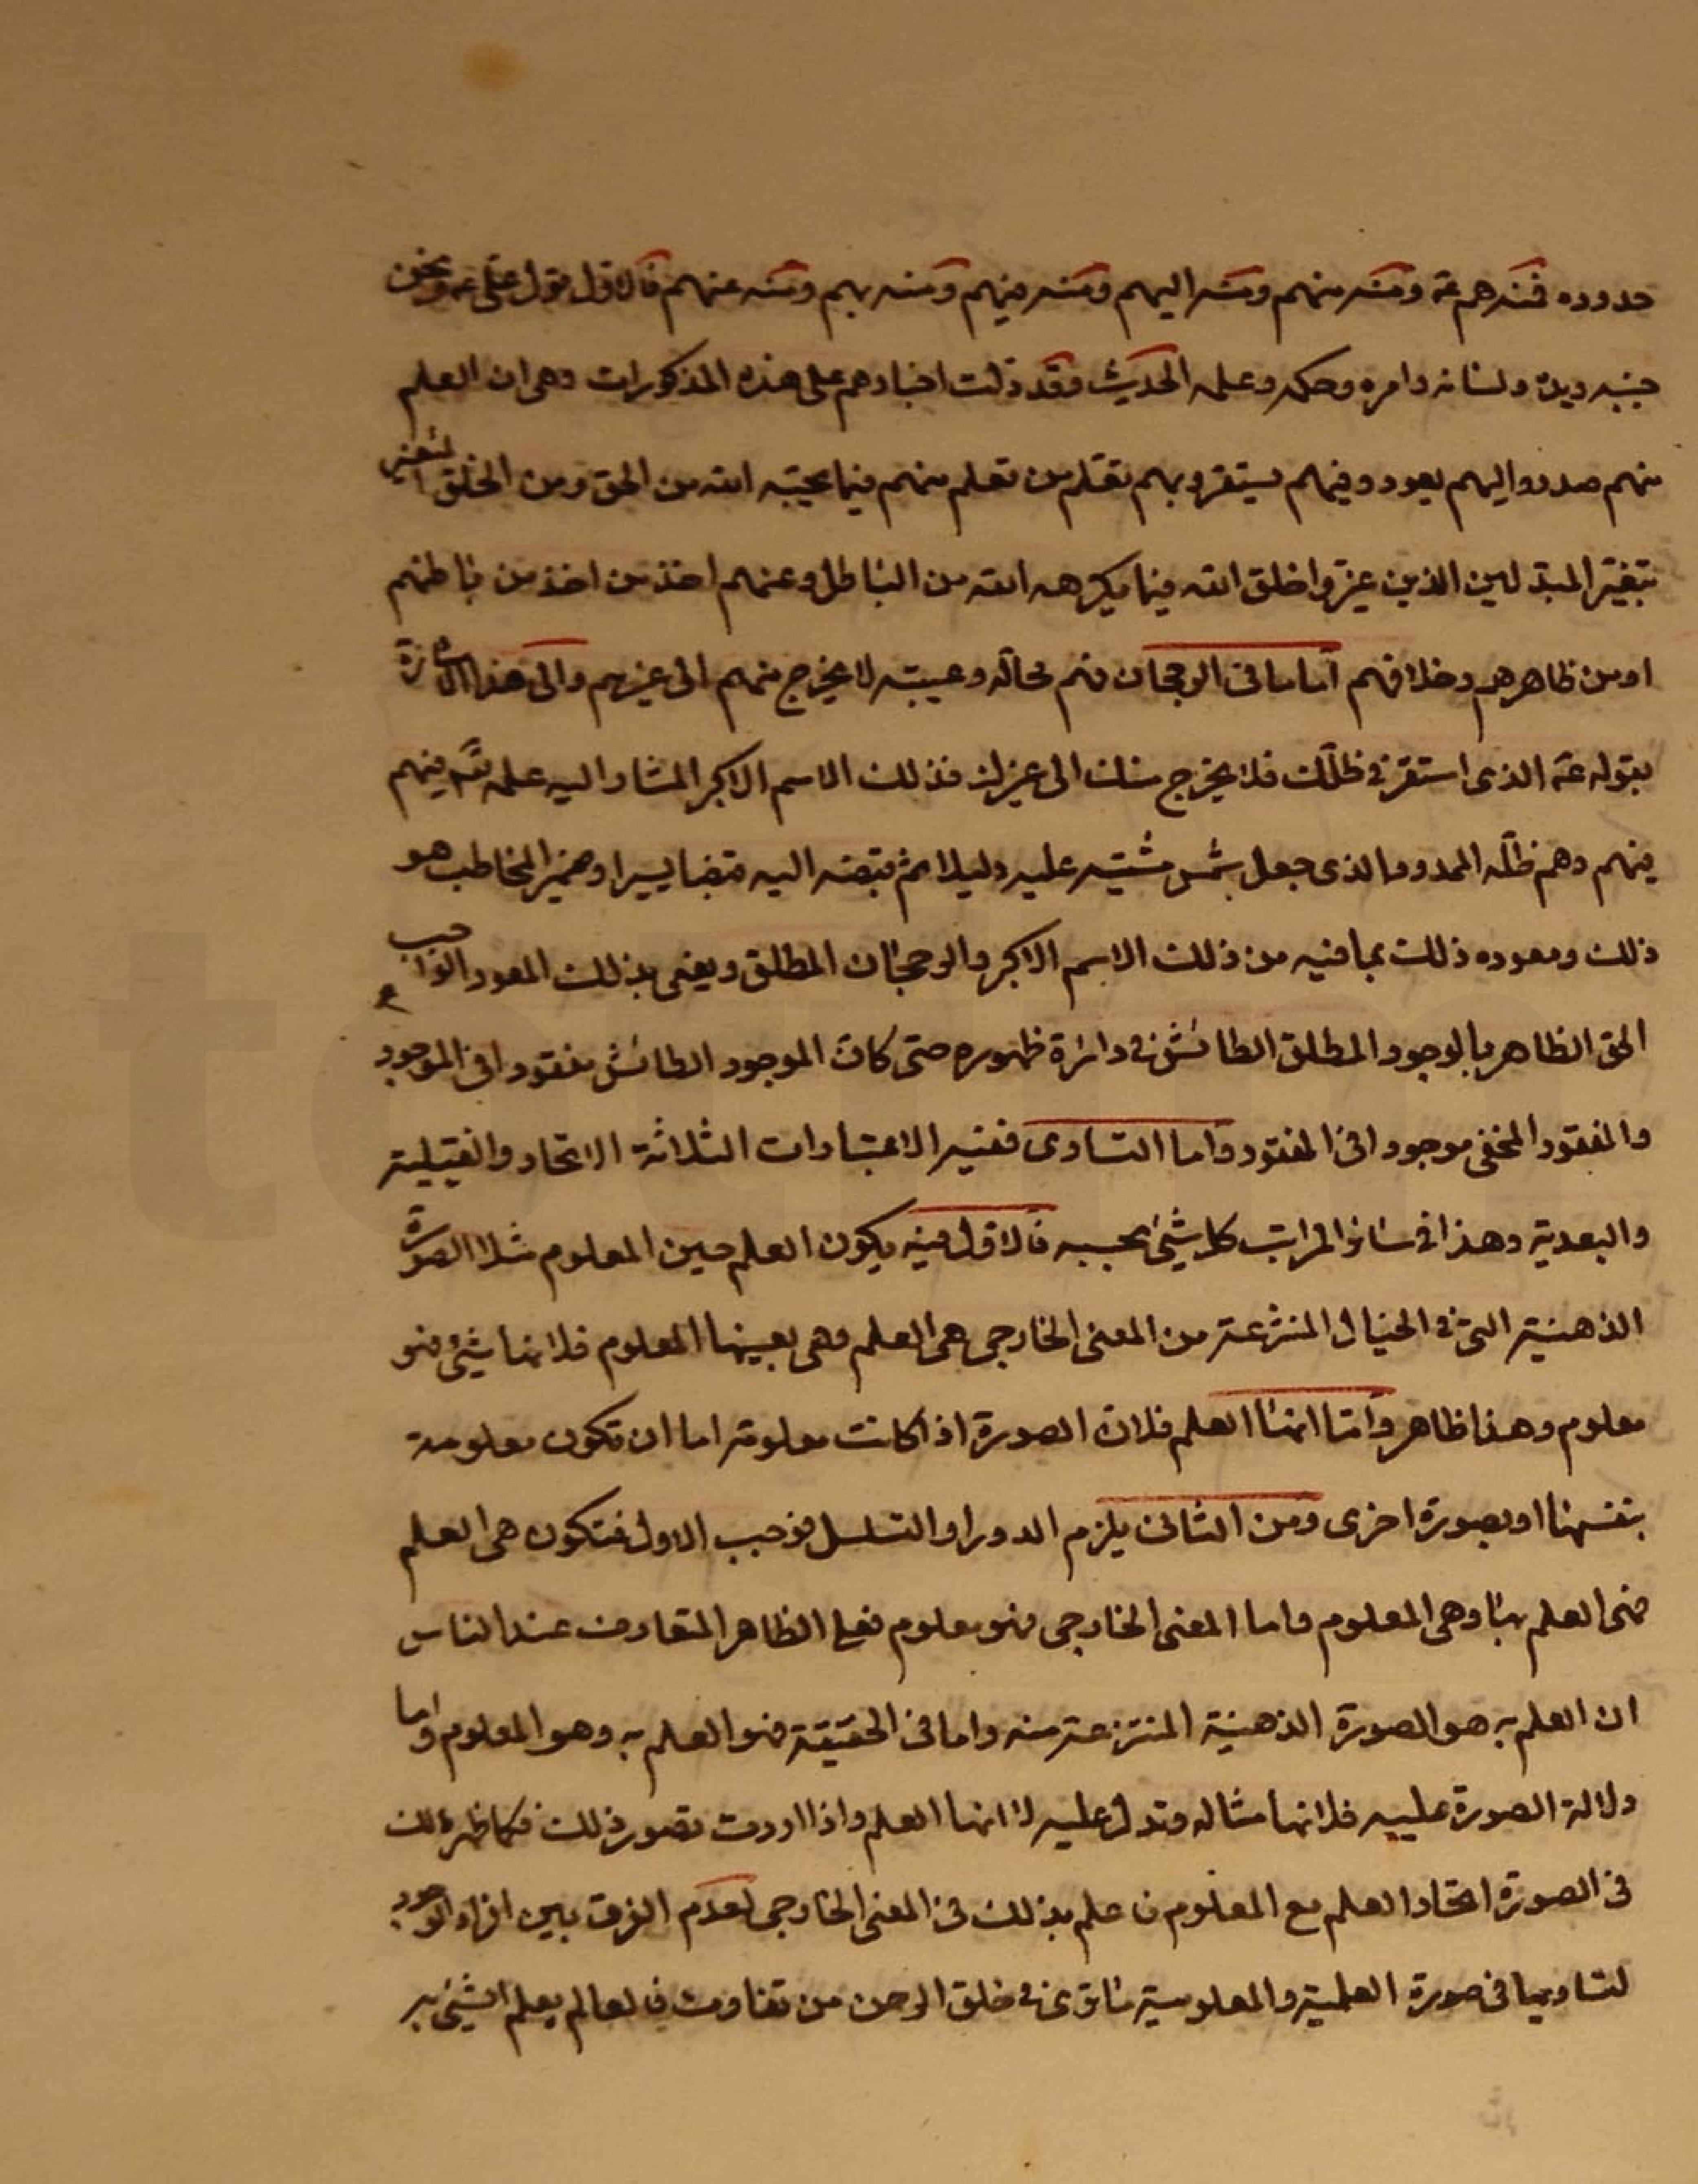 حدوده فمنه هم عة ومنه منهم ومنه اليهم ومنه فيهم ومنه بهم ومنه عنهم فالاول قول علي عة ونحن
جنبه ويده ولسانه وامره وحكمه وعلمه الحديث وقد دلت اخبارهم على هذه المذكورات وهى ان العلم
منهم صدر واليهم يعود وفيهم يستقر وبهم تعلم من تعلم منهم فيما يحبه الله من الحق ومن الخلق
بتغيير المبدلين الذين غيروا خلق الله فيما يكرهه الله من الباطل وعنهم اخذ من اخذ من باطنهم
او من ظاهرهم وخلافهم اما ما فى الرجحان فهم محاله وعيبته لا يخرج منهم الى غيرهم والى هذا الاشارة
بقوله عة الذى استقر فى ظلك فلا يخرج منك الى غيرك فذلك الاسم الاكبر المشار اليه علمه فيهم
فيهم وهم ظله الممدود الذى جعل شمس مشيته عليه دليلا ثم قبضه اليه قبضا يسيرا وضمير المخاطب هو
ذلك ومعوده ذلك بما فيه من ذلك الاسم الاكبر والرجحان المطلق ويعنى بذلك المعود الواجب
الحق الظاهر بالوجود المطلق الطائش فى دائرة ظهوره حتى كان الموجود الطائش مفقودا فى الموجود
والمفقود المخفى موجودا فى المفقود واما التساوى ففيه الاعتبارات الثلاثة الاتحاد والقبلية
والبعدية وهذا فى سائر المراتب كل شئ بحسبه فالاول فيه يكون العلم عين المعلوم مثلا الصورة
الذهنية التى فى الخيال المنتزعة من المعنى الخارجى هى العلم وهى بعينها المعلوم فلانها شئ فهو
معلوم وهذا ظاهر واما انها العلم فلان الصورة اذا كانت معلومة اما ان تكون معلومة
بنفسها او بصورة اخرى ومن الثانى يلزم الدور او التسلسل فوجب الاول فتكون هى العلم
فهى العلم بها وهى المعلوم واما المعنى الخارجى فهو معلوم فعلى الظاهر المتعارف عند الناس
ان العلم به هو الصورة الذهنية المنتزعة منه واما فى الحقيقة فهو العلم به وهو المعلوم واما
دلالة الصورة عليه فلانها مثاله وتدل عليه لا انها العلم واذا اردت تصور ذلك فكما ظهر لك
فى الصورة اتحاد العلم مع المعلوم فاعلم بذلك فى المعنى الخارجى لعدم الفرق بين افراد الوجود
لتساويها فى صورة العلمية والمعلومية ما ترى فى خلق الرحمن من تفاوت فالعالم يعلم الشئ به